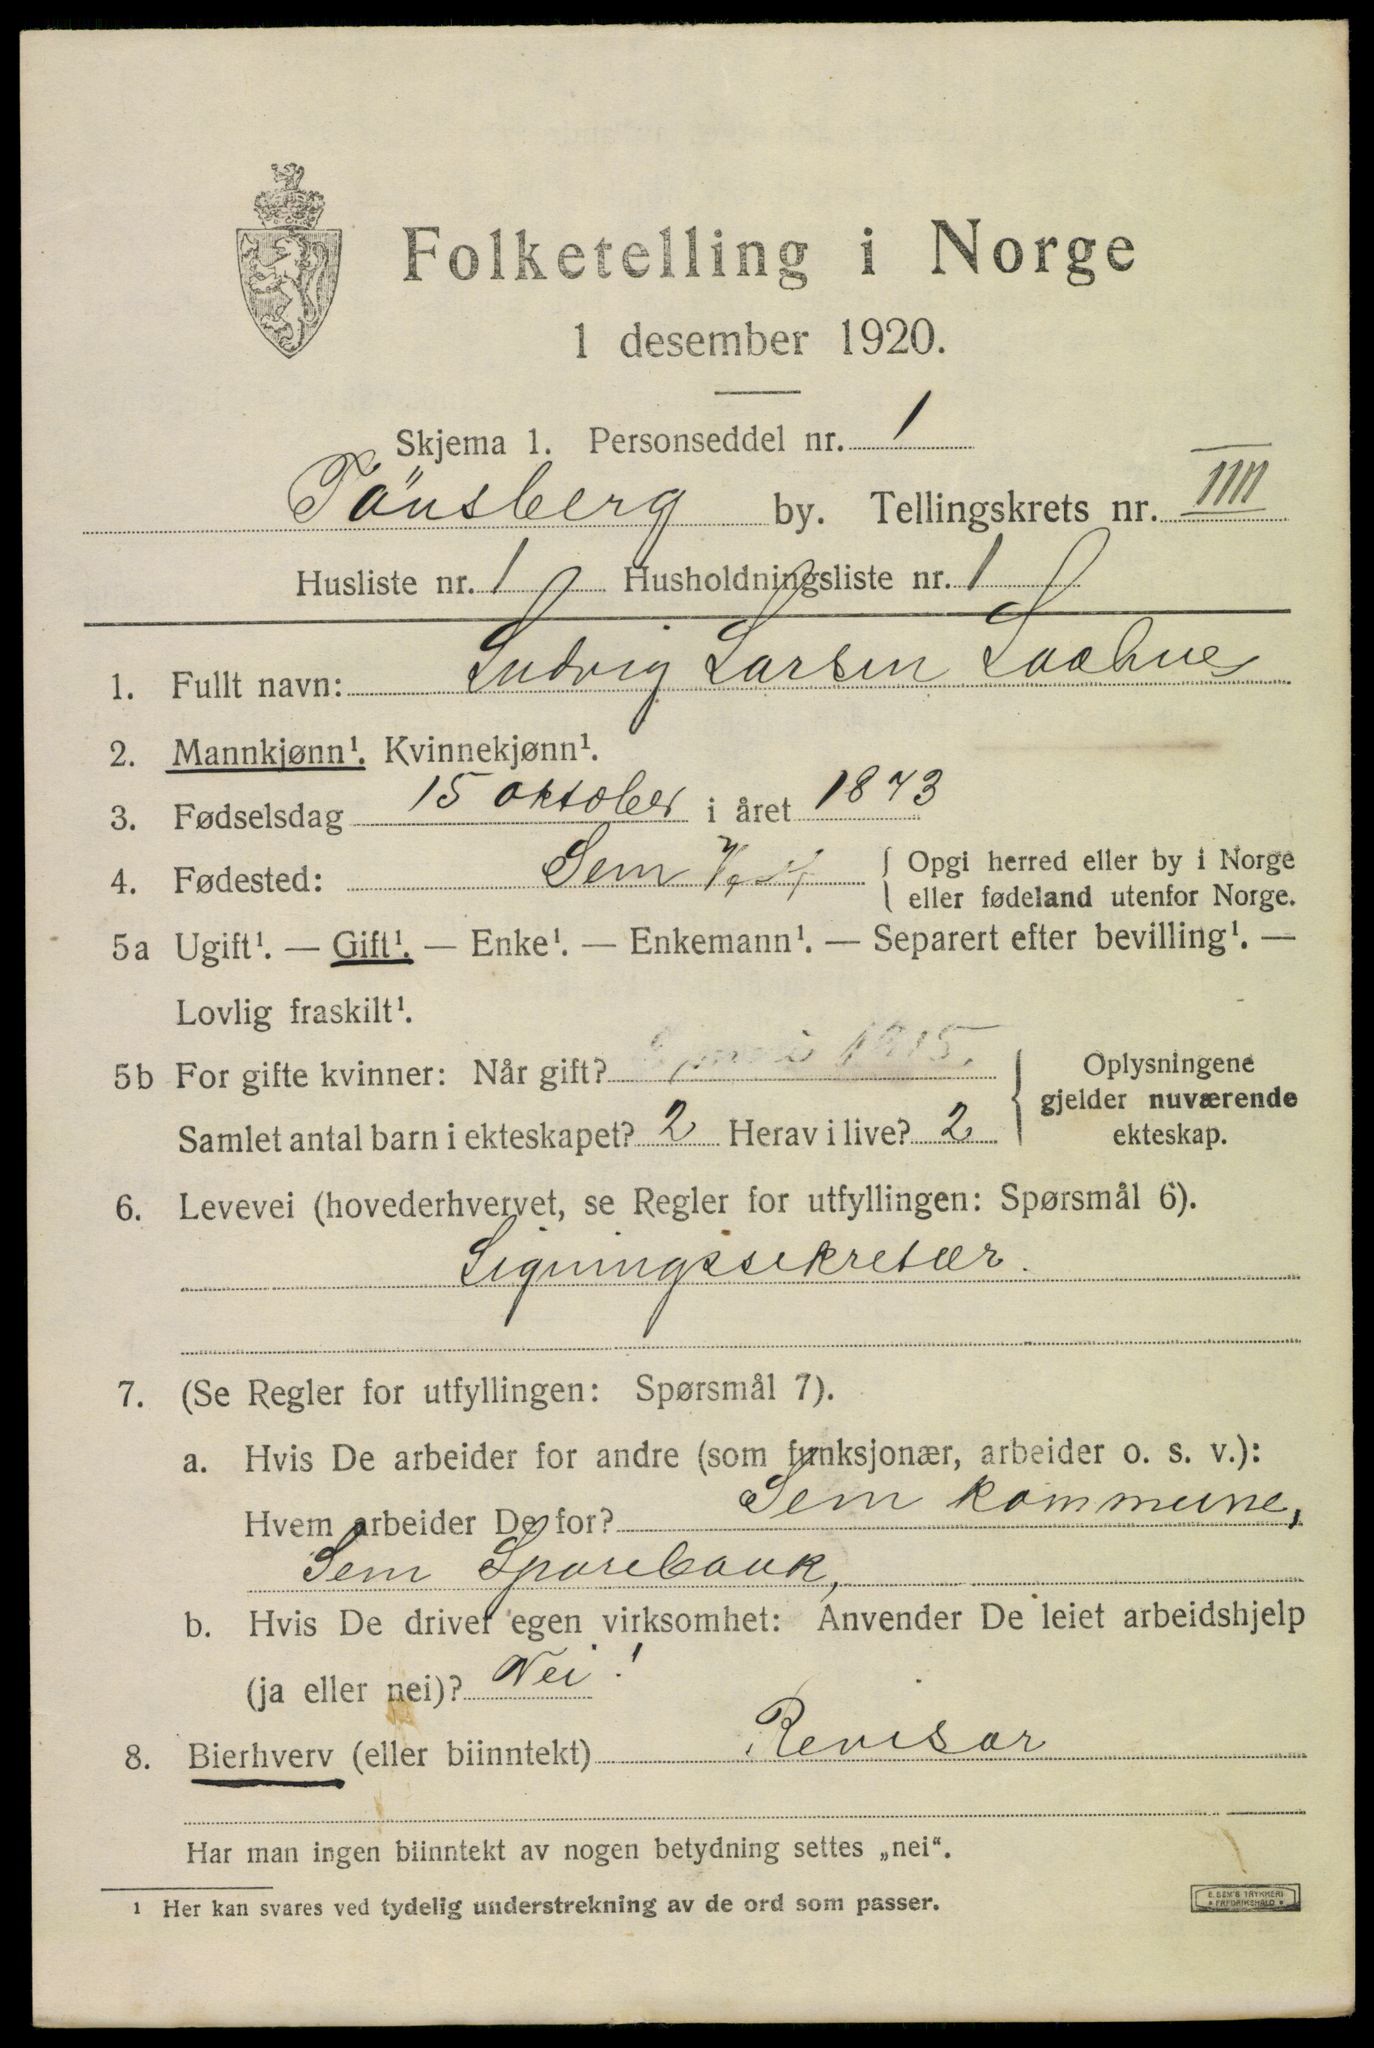 Folketelling i Norge
1 desember 1920.
Skjema 1. Personseddel nr. 1
Tönsberg by. Tellingskrets nr. IIII
Husliste nr. 1 Husholdningsliste nr. 1
1. Fullt navn: Ludvig Larsen
2. Mannkjønn¹. Kvinnekjønn¹.
3. Fødselsdag 15 oktober i året 1873
4. Fødested: Sem { Opgi herred eller by i Norge
eller fødeland utenfor Norge.
5a Ugift¹. — Gift¹. — Enke¹. — Enkemann¹. — Separert efter bevilling¹. —
Lovlig fraskilt¹.
5b For gifte kvinner: Når gift? 1915. { Oplysningene
gjelder nuværende
ekteskap.
Samlet antal barn i ekteskapet? 2 Herav i live? 2
6. Levevei (hovederhvervet, se Regler for utfyllingen: Spørsmål 6).
Ligningssekretær.
7. (Se Regler for utfyllingen: Spørsmål 7).
a. Hvis De arbeider for andre (som funksjonær, arbeider o. s. v.):
Hvem arbeider De for? Sem kommune,
Sem Sparebank,
b. Hvis De driver egen virksomhet: Anvender De leiet arbeidshjelp
(ja eller nei)? Nei!
8. Bierhverv (eller biinntekt) Revisor
Har man ingen biinntekt av nogen betydning settes „nei“.
¹ Her kan svares ved tydelig understrekning av de ord som passer.
E. SEM'S TRYKKERI
FREDRIKSHALD